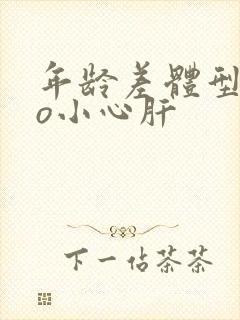 年龄差體型
o小心肝
下一佔茶茶